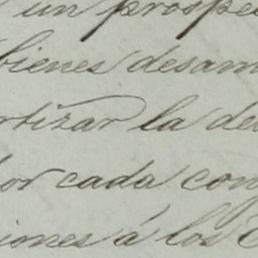 un prospe
bienes desam
rtizar la de
or cada con
iones á los